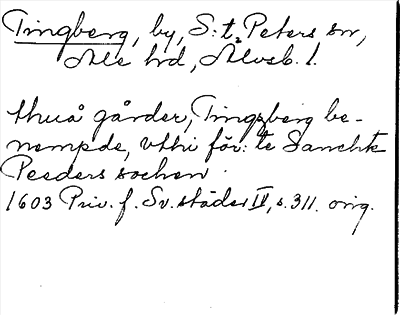 Tingberg, by, S:t Peters sn,
Ale hd, Älvsb. l.
thuå gårder, Tingzberg be-
nempde, vthi för:te Sanckte
Peeders sochen.
1603 Priv. f. Sv. städer IV, s. 311. orig.